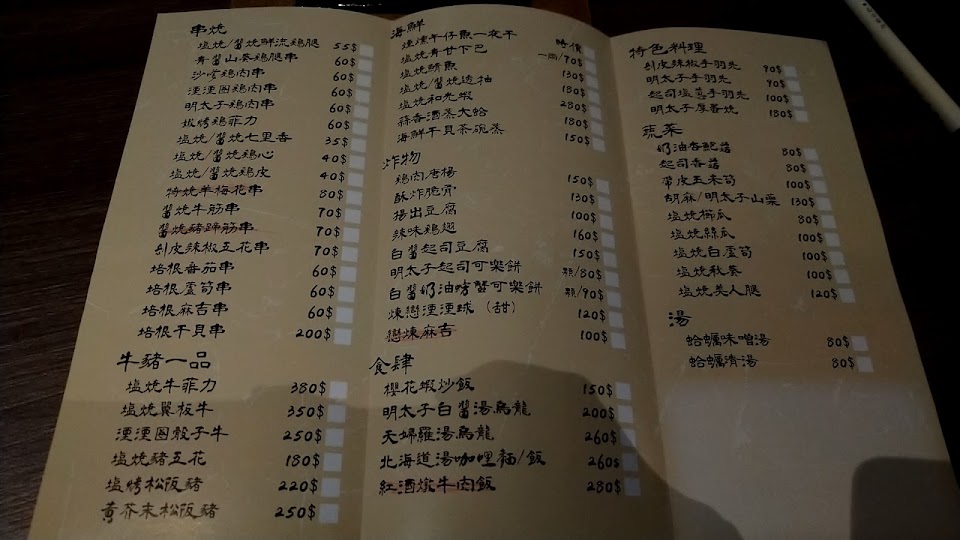 串燒
塩燒/醬燒鮮流鷄腿 55$
青醬山葵鷄腿串 60$
沙嗲鷄肉串 60$
湮湮圈鷄肉串 60$
明太子鷄肉串 60$
炭烤鷄菲力 60$
塩燒/醬燒七里香 35$
塩燒/醬燒鷄心 40$
塩燒/醬燒鷄皮 40$
特燒羊梅花串 80$
醬燒牛筋串 70$
醬燒豬蹄筋串 70$
剝皮辣椒五花串 70$
培根番茄串 60$
培根蘆筍串 60$
培根麻吉串 60$
培根干貝串 200$
牛豬一品
塩燒牛菲力 380$
塩燒翼板牛 350$
湮湮圈骰子牛 250$
塩燒豬五花 180$
塩烤松阪豬 220$
黃芥末松阪豬 250$
海鮮
煙燻午仔魚一夜干 時價
塩燒青甘下巴 一兩/70$
塩燒鯖魚 130$
塩燒/醬燒透抽 180$
塩燒和光蝦 280$
蒜香酒蒸大蛤 180$
海鮮干貝茶碗蒸 150$
炸物
鷄肉唐楊 150$
酥炸脆骨 130$
揚出豆腐 100$
辣味鷄翅 160$
白醬起司豆腐 150$
明太子起司可樂餅 顆/80$
白醬奶油螃蟹可樂餅 顆/90$
煉戀湮湮球 (甜) 120$
戀煉麻吉 100$
食肆
櫻花蝦炒飯 150$
明太子白醬湯烏龍 200$
天婦羅湯烏龍 260$
北海道湯咖哩麵/飯 260$
紅酒燉牛肉飯 280$
特色料理
剝皮辣椒手羽先 90$
明太子手羽先 90$
起司塩蔥手羽先 100$
明太子厚蛋燒 180$
蔬菜
奶油杏鮑菇 80$
起司香菇 80$
帶皮玉米筍 100$
胡麻/明太子山藥 130$
塩燒櫛瓜 80$
塩燒絲瓜 100$
塩燒白蘆筍 100$
塩燒秋葵 100$
塩燒美人腿 120$
湯
蛤蠣味噌湯 80$
蛤蠣清湯 80$